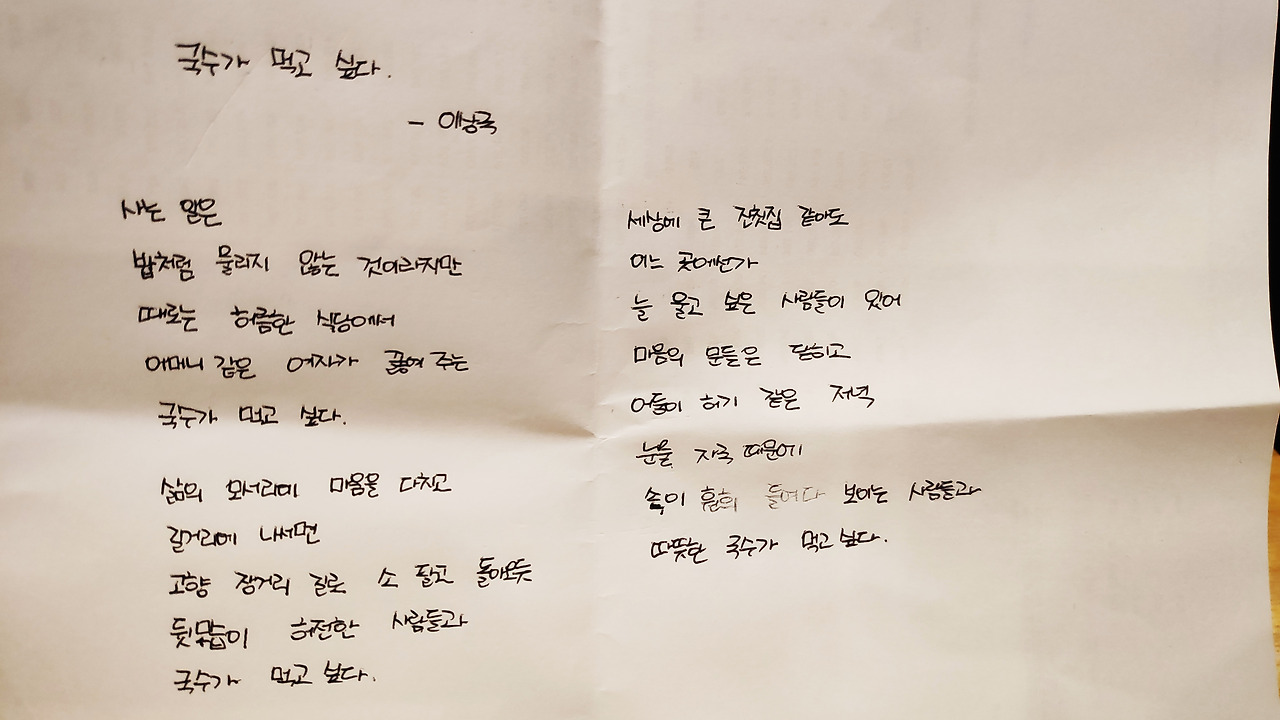 국수가 먹고 싶다.
- 이상국
사는 일은
밥처럼 물리지 않는 것이라지만
때로는 허름한 식당에서
어머니 같은 여자가 끓여 주는
국수가 먹고 싶다.
삶의 모서리에 마음을 다치고
길거리에 나서면
고향 장거리 길로 소 팔고 돌아오듯
뒷모습이 허전한 사람들과
국수가 먹고 싶다.
세상에 큰 잔칫집 같아도
어느 곳에선가
늘 울고 싶은 사람들이 있어
마음의 문들은 닫히고
어둠이 허기 같은 저녁
눈물 자국 때문에
속이 훤히 들여다 보이는 사람들과
따뜻한 국수가 먹고 싶다.